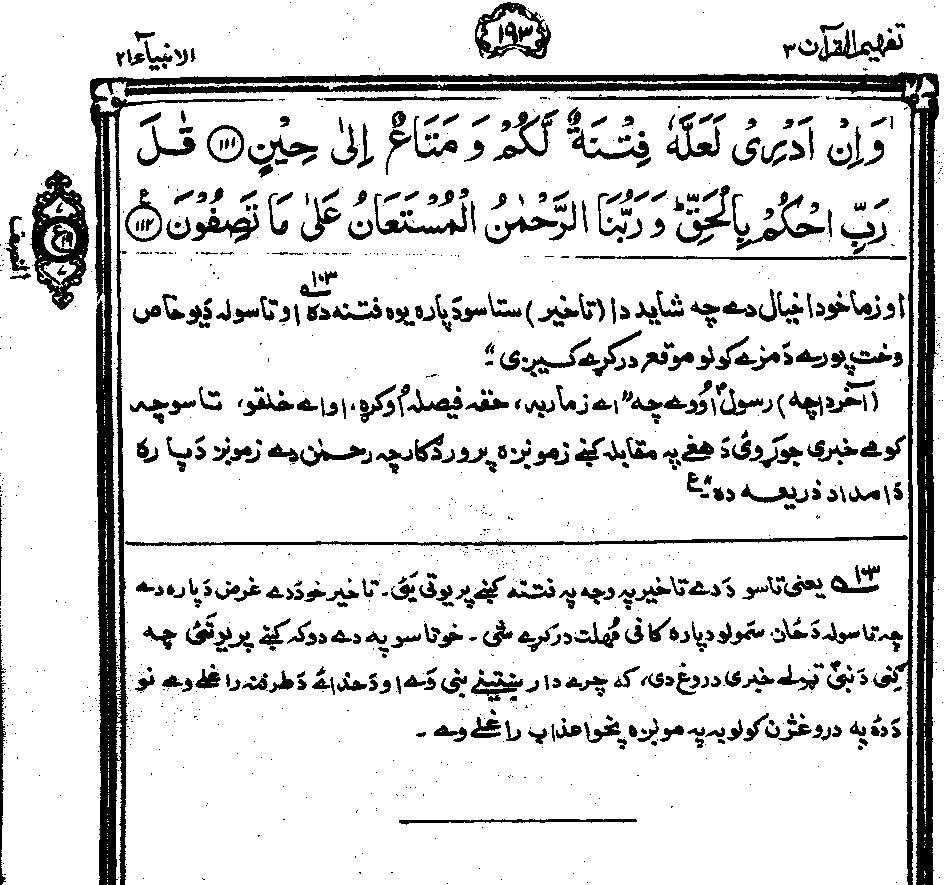 تفهیم القرآن ۳
۱۹۳
الانبیآء ۲۱
وَاِنْ اَدْرِیْ لَعَلَّهٗ فِتْنَةٌ لَّكُمْ وَ مَتَاعٌ اِلٰی حِیْنٍ ⑪⑪ قٰلَ
رَبِّ احْكُمْ بِالْحَقِّ ؕ وَ رَبُّنَا الرَّحْمٰنُ الْمُسْتَعَانُ عَلٰی مَا تَصِفُوْنَ ۱۱۲ ع
او زما خو دا خیال دے چه شاید دا (تاخیر) ستاسو دَپاره یوه فتنه ده ۱۰۳ او تاسو له دَ یو خاص
وخت پورے دَ مزے کولو موقعه درکړے کیږی ”۔
(آخر دا چه) رسول اووے چه ”اے زما ربه، حقه فیصله اوکړه، او اے خلقو، تاسو چه
کومے خبری جوړوئ دَ هغے په مقابله کښے زمونږه پروردګار چه رحمٰن دے زمونږ دَپاره
دَ امداد ذریعه ده“۔ ع
۱۰۳ یعنی تاسو دَ دے تاخیر په وجه په فتنه کښے پریوتی یئ۔ تاخیر خو دَ دے غرض دَپاره دے
چه تاسو له دَ ځان سمولو دپاره کافی مُهلت درکړے شی۔ خو تاسو په دے دوکه کښے پریوتئ چه
دَ نبی ټولے خبری دروغ دی، که چرے دا رښتینے نبی وَے او دَ خداۓ دَ طرفنه راغلے وے نو
دَ ده په دروغژن کولو به په مونږه پخوا عذاب راغلے وے۔